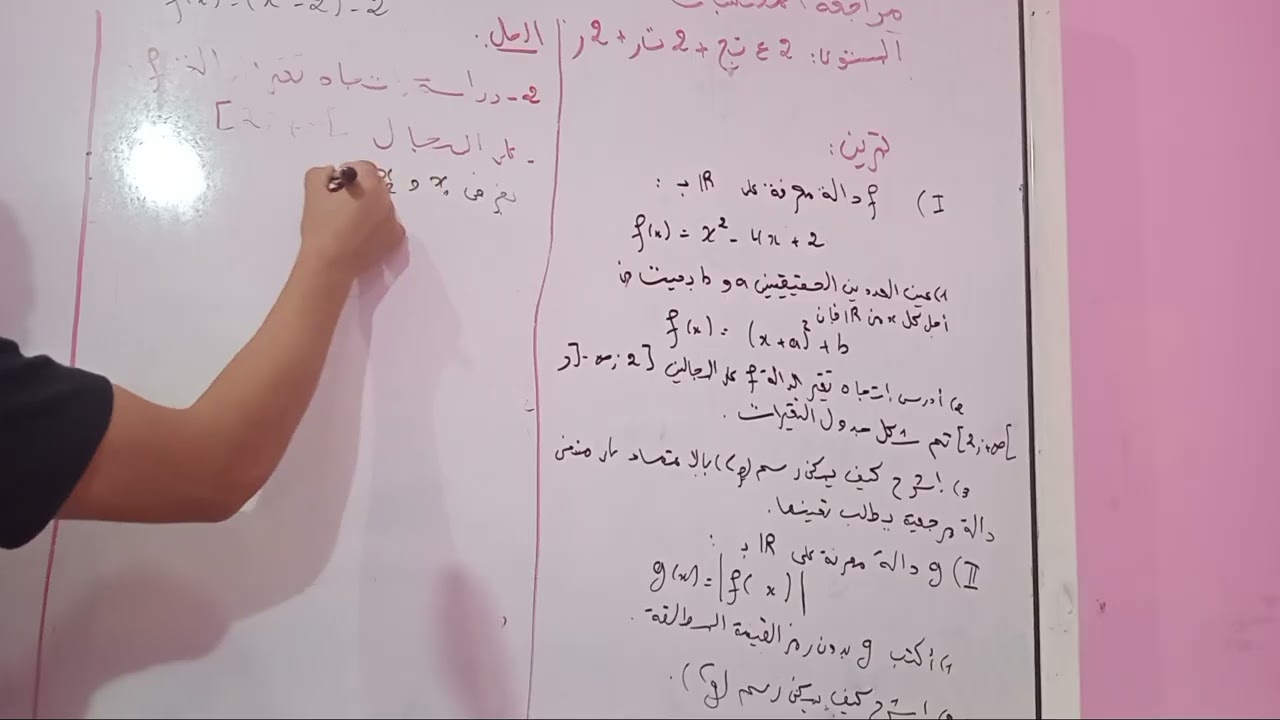 مراجعة
المستوى: 2 ع تج + 2 تر + 2 ر
تمرين:
I) f دالة معرفة على IR بـ :
f(x) = x² - 4x + 2
1) عين العددين الحقيقيين a و b بحيث من
أجل كل x من IR فإن
f(x) = (x+a)² + b
2) أدرس إتجاه تغير الدالة f على المجالين ]-∞; 2] و
[2; +∞[ ثم شكل جدول التغيرات .
3) إشرح كيف يمكن رسم (Cf) بالاعتماد على منحنى
دالة مرجعية يطلب تعيينها.
II) g دالة معرفة على IR بـ :
g(x) = |f(x)|
1) أكتب g بدون رمز القيمة المطلقة .
إشرح كيف يمكن رسم (Cg).
f(x) = (x-2) - 2
الحل .
2- دراسة إتجاه تغير f
- على المجال [2; +∞[
نفرض x₁ و x₂